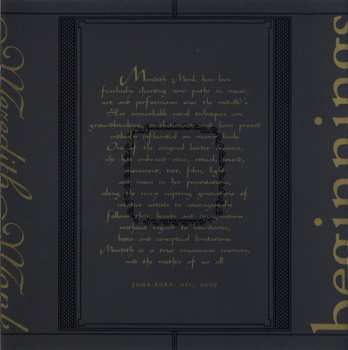 Meredith Monk
Meredith Monk has been
fearlessly charting new paths in music,
art and performance since the mid-60's
Her remarkable vocal techniques are
groundbreaking, revolutionary and have proven
influential in many fields
One of the original border
she has embraced voice, ritual, sound,
movement, text, film, light
and more in her presentations,
along the way inspiring generations of
creative artists to courageously
follow their hearts and imaginations
without regard to boundaries,
hopes and conceptual limitations
Meredith is a true American maverick
and the mother of us all
JOHN ZORN, NYC, 2009
beginnings